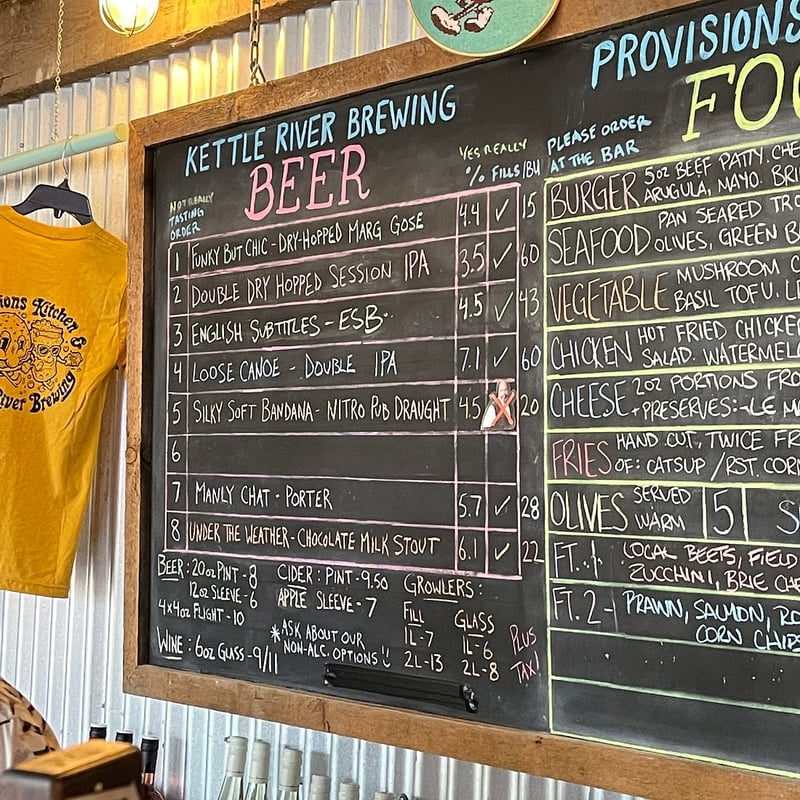 KETTLE RIVER BREWING
BEER
NOT REALLY
TASTING
ORDER
YES REALLY
% FILLS IBU
1 FUNKY BUT CHIC - DRY-HOPPED MARG GOSE 4.4 ✓ 15
2 DOUBLE DRY HOPPED SESSION IPA 3.5 ✓ 60
3 ENGLISH SUBTITLES - ESB 4.5 ✓ 43
4 LOOSE CANOE - DOUBLE IPA 7.1 ✓ 60
5 SILKY SOFT BANDANA - NITRO PUB DRAUGHT 4.5 X 20
6
7 MANLY CHAT - PORTER 5.7 ✓ 28
8 UNDER THE WEATHER - CHOCOLATE MILK STOUT 6.1 ✓ 22
BEER: 20oz PINT - 8
12oz SLEEVE - 6
4x4oz FLIGHT - 10
WINE: 6oz GLASS - 9/11
CIDER: PINT - 9.50
APPLE SLEEVE - 7
*ASK ABOUT OUR
NON-ALC. OPTIONS!
GROWLERS:
FILL GLASS
1L-7 1L-6
2L-13 2L-8
PLUS
TAX!
PROVISIONS
FOO
PLEASE ORDER
AT THE BAR
BURGER 5oz BEEF PATTY. CHE
ARUGULA, MAYO. BRI
SEAFOOD PAN SEARED TRO
OLIVES, GREEN B
VEGETABLE MUSHROOM C
BASIL TOFU. LE
CHICKEN HOT FRIED CHICKE
SALAD. WATERMEL
CHEESE 2oz PORTIONS FRO
+PRESERVES: -LE M
FRIES HAND CUT, TWICE FR
OF: CATSUP / RST. CORN
OLIVES SERVED
WARM 5 S
FT. 1 LOCAL BEETS, FIELD
ZUCCHINI, BRIE CHE
FT. 2 - PRAWN, SALMON, RO
CORN CHIPS
ions Kitchen &
River Brewing